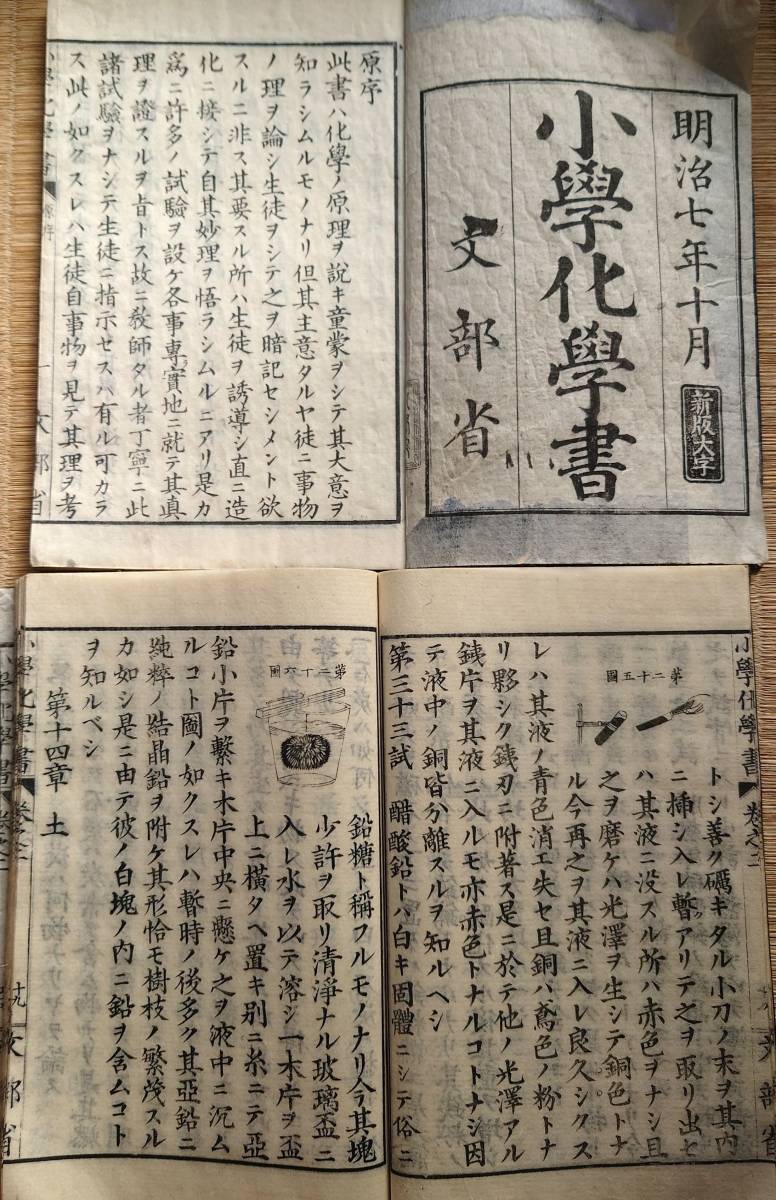 明治七年十月
新版大字
小學化學書
文部省
原序
此書ハ化學ノ原理ヲ說キ童蒙ヲシテ其大意ヲ
知ラシムルモノナリ但其主意タルヤ徒ニ事物
ノ理ヲ論シ生徒ヲシテ之ヲ暗記セシメント欲
スルニ非ス其要スル所ハ生徒ヲ誘導シ直ニ造
化ニ接シテ自其妙理ヲ悟ラシムルニアリ是カ
爲ニ許多ノ試驗ヲ設ケ各事專實地ニ就テ其眞
理ヲ證スルヲ旨トス故ニ敎師タル者丁寧ニ此
諸試驗ヲナシテ生徒ニ指示セスハ有ル可カラ
ス此ノ如クスレハ生徒自事物ヲ見テ其理ヲ考
小學化學書 原序 一 文部省
小學化學書 卷之二 文部省
第二十五圖
トシ善ク礪キタル小刀ノ末ヲ其內
ニ揷シ入レ暫アリテ之ヲ取リ出セ
ハ其液ニ沒スル所ハ赤色ヲナシ且
之ヲ磨ケハ光澤ヲ生シテ銅色トナ
ル今再之ヲ其液ニ入レ良久シクス
レハ其液ノ靑色消エ失セ且銅ハ鳶色ノ粉トナ
リ夥シク銕刃ニ附著ス是ニ於テ他ノ光澤アル
銕片ヲ其液ニ入ルモ亦赤色トナルコトナシ因
テ液中ノ銅皆分離スルヲ知ルヘシ
第三十三試 醋酸鉛トハ白キ固體ニシテ俗ニ
第二十六圖
鉛糖ト稱フルモノナリ今其塊
少許ヲ取リ淸淨ナル玻璃盃ニ
入レ水ヲ以テ溶シ一木片ヲ盃
上ニ橫タヘ置キ別ニ糸ニテ亞
鉛小片ヲ繫キ木片中央ニ懸ケ之ヲ液中ニ沉ム
ルコト圖ノ如クスレハ暫時ノ後多ク其亞鉛ニ
純粹ノ結晶鉛ヲ附ケ其形恰モ樹枝ノ繁茂スル
カ如シ是ニ由テ彼ノ白塊ノ內ニ鉛ヲ含ムコト
ヲ知ルベシ
第十四章 土
小學化學書 卷之二 十九 文部省